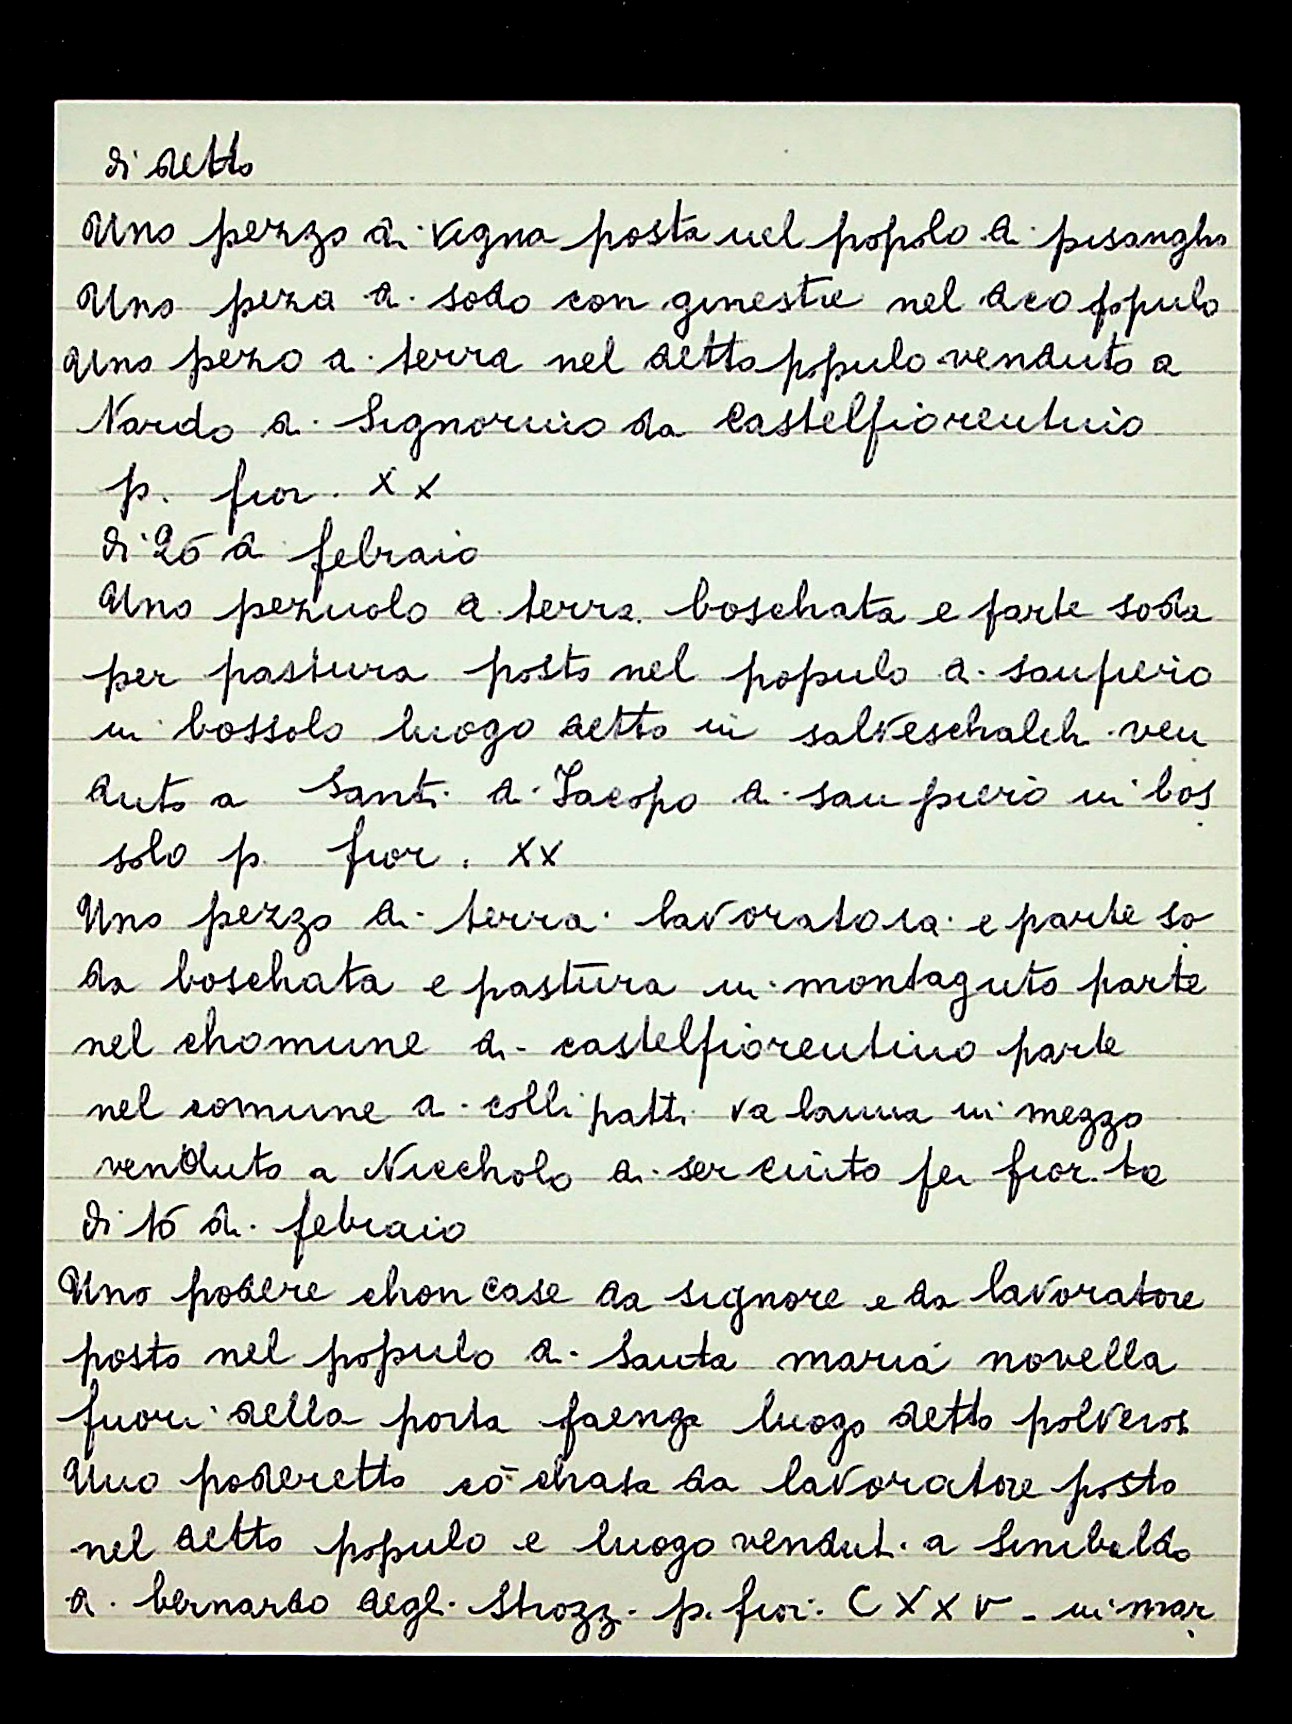 di detto
Uno pezzo di vigna posta nel popolo di pisangho
Uno peza di sodo con ginestre nel dco populo
Uno pezo di terra nel detto populo venduto a
Nardo di Signorino da Castelfiorentino
p. fior. XX
di 25 di febraio
Uno pezuolo di terra boschata e parte soda
per pastura posto nel populo di sanpiero
in bossolo luogo detto in salveschalch ven
duto a Santi di Iacopo di san piero in bos
solo p. fior. XX
Uno pezzo di terra lavoratoia e parte so
da boschata e pastura in montaguto parte
nel chomune di castelfiorentino parte
nel comune di colli patti va lauua in mezzo
venduto a Niccholo di ser cinto per fior.
di 15 di febraio
Uno podere chon case da signore e da lavoratore
posto nel populo di Santa maria novella
fuori della porta faenza luogo detto polveros
Uno poderetto cō chasa da lavoratore posto
nel detto populo e luogo vendut. a Sinibaldo
di bernardo degl. Strozz. p. fior. CXXV - in mar